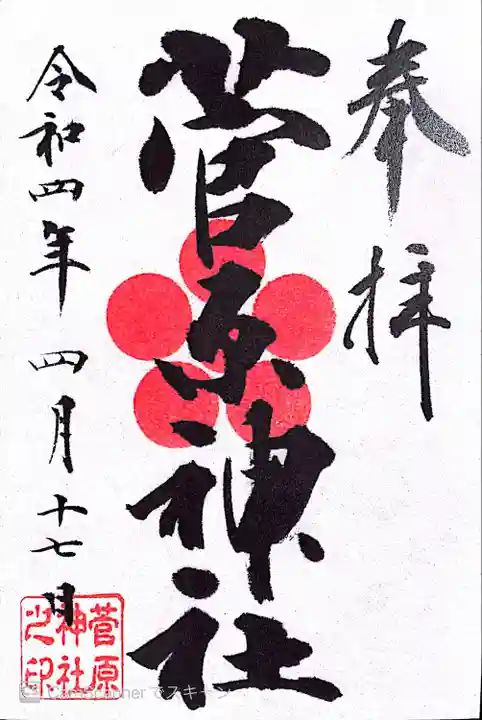 奉拝
菅原神社
令和四年四月十七日
菅原
神社
之印
CamScanner でスキャン